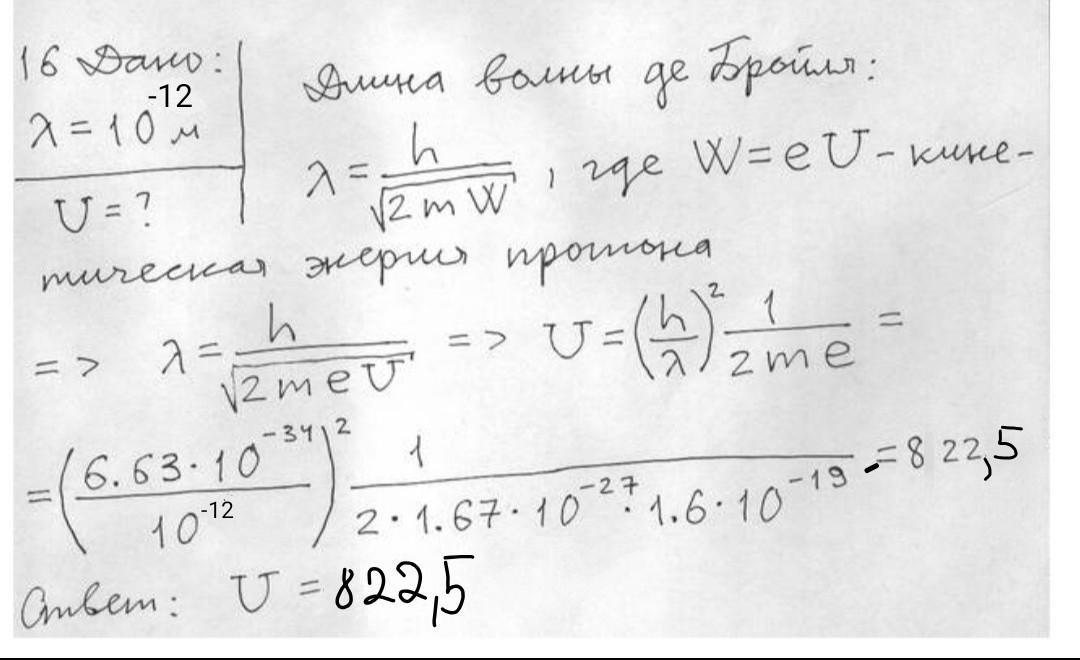 16 Дано:
λ = 10⁻¹² м
U = ?
Длина волны де Бройля:
λ = h / √(2 m W) , где W = e U - кине-
тическая энергия протона
=> λ = h / √(2 m e U) => U = (h / λ)² 1 / (2 m e) =
= (6.63 · 10⁻³⁴ / 10⁻¹²)² 1 / (2 · 1.67 · 10⁻²⁷ · 1.6 · 10⁻¹⁹) = 822,5
Ответ: U = 822,5